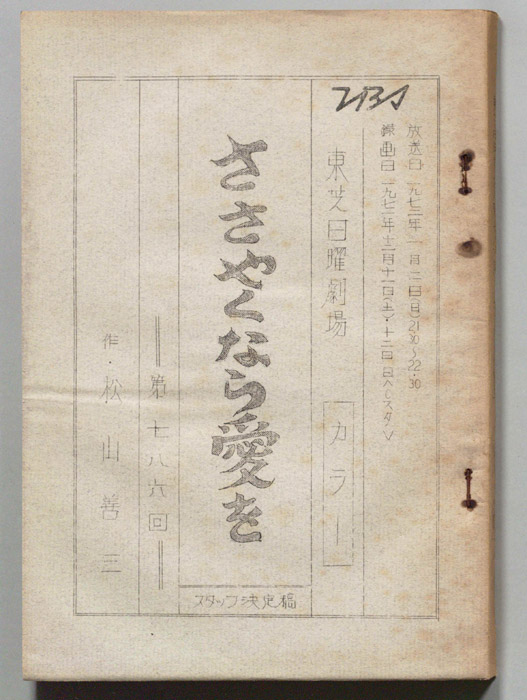 放送日 一九七二年 一月 二日(日)21:30〜22:30
録画日 一九七一年十二月十一日(土)・十二日
TBS
東芝日曜劇場 カラー
ささやくなら愛を
スタッフ決定稿
第七八六回
作・松山善三